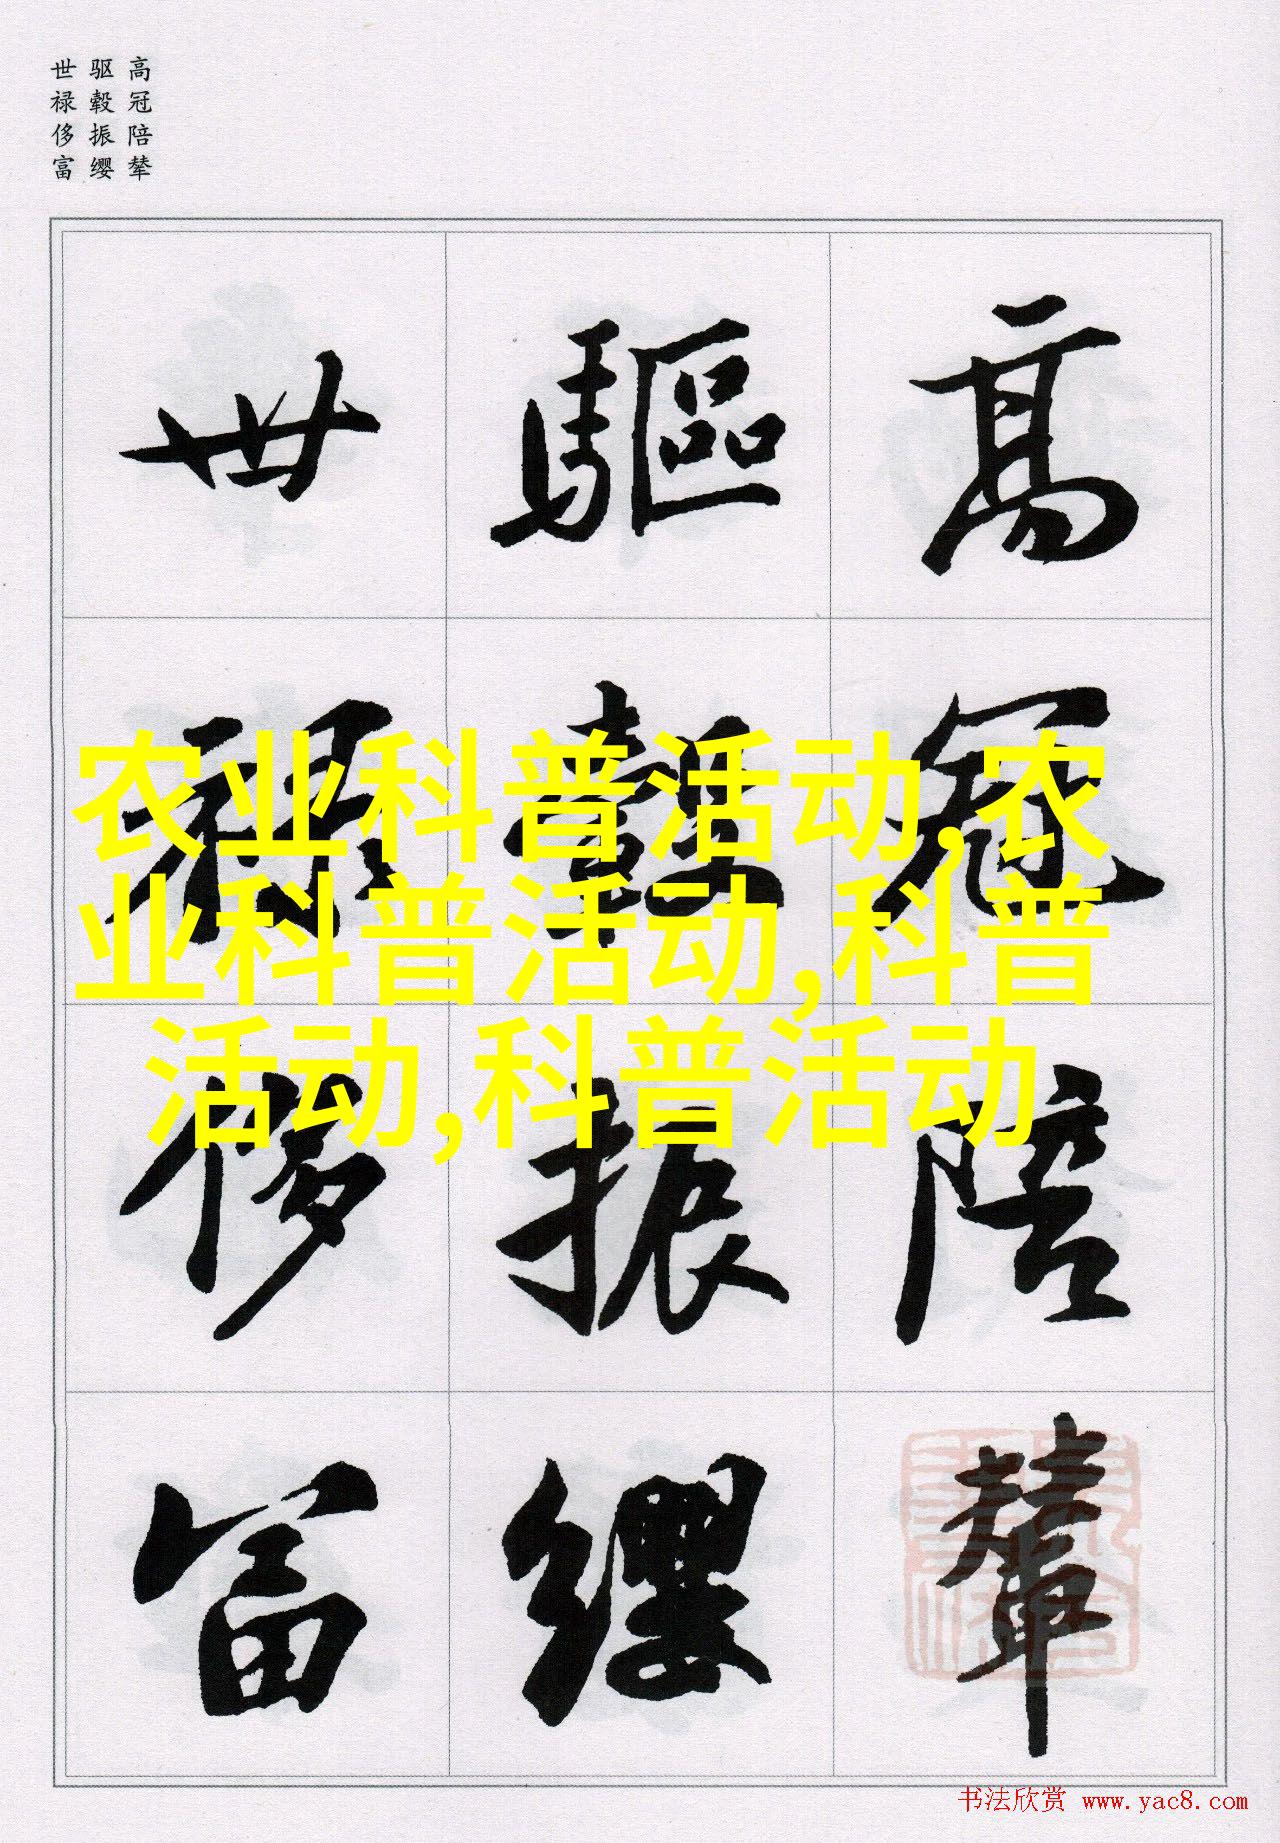 高冠陪辇
驱毂振缨
世禄侈富
高冠陪輦
驅轂振纓
世禄侈富
农业科普活动,农
业科普活动,科普
活动,科普活动
书法欣赏 www.yac8.com